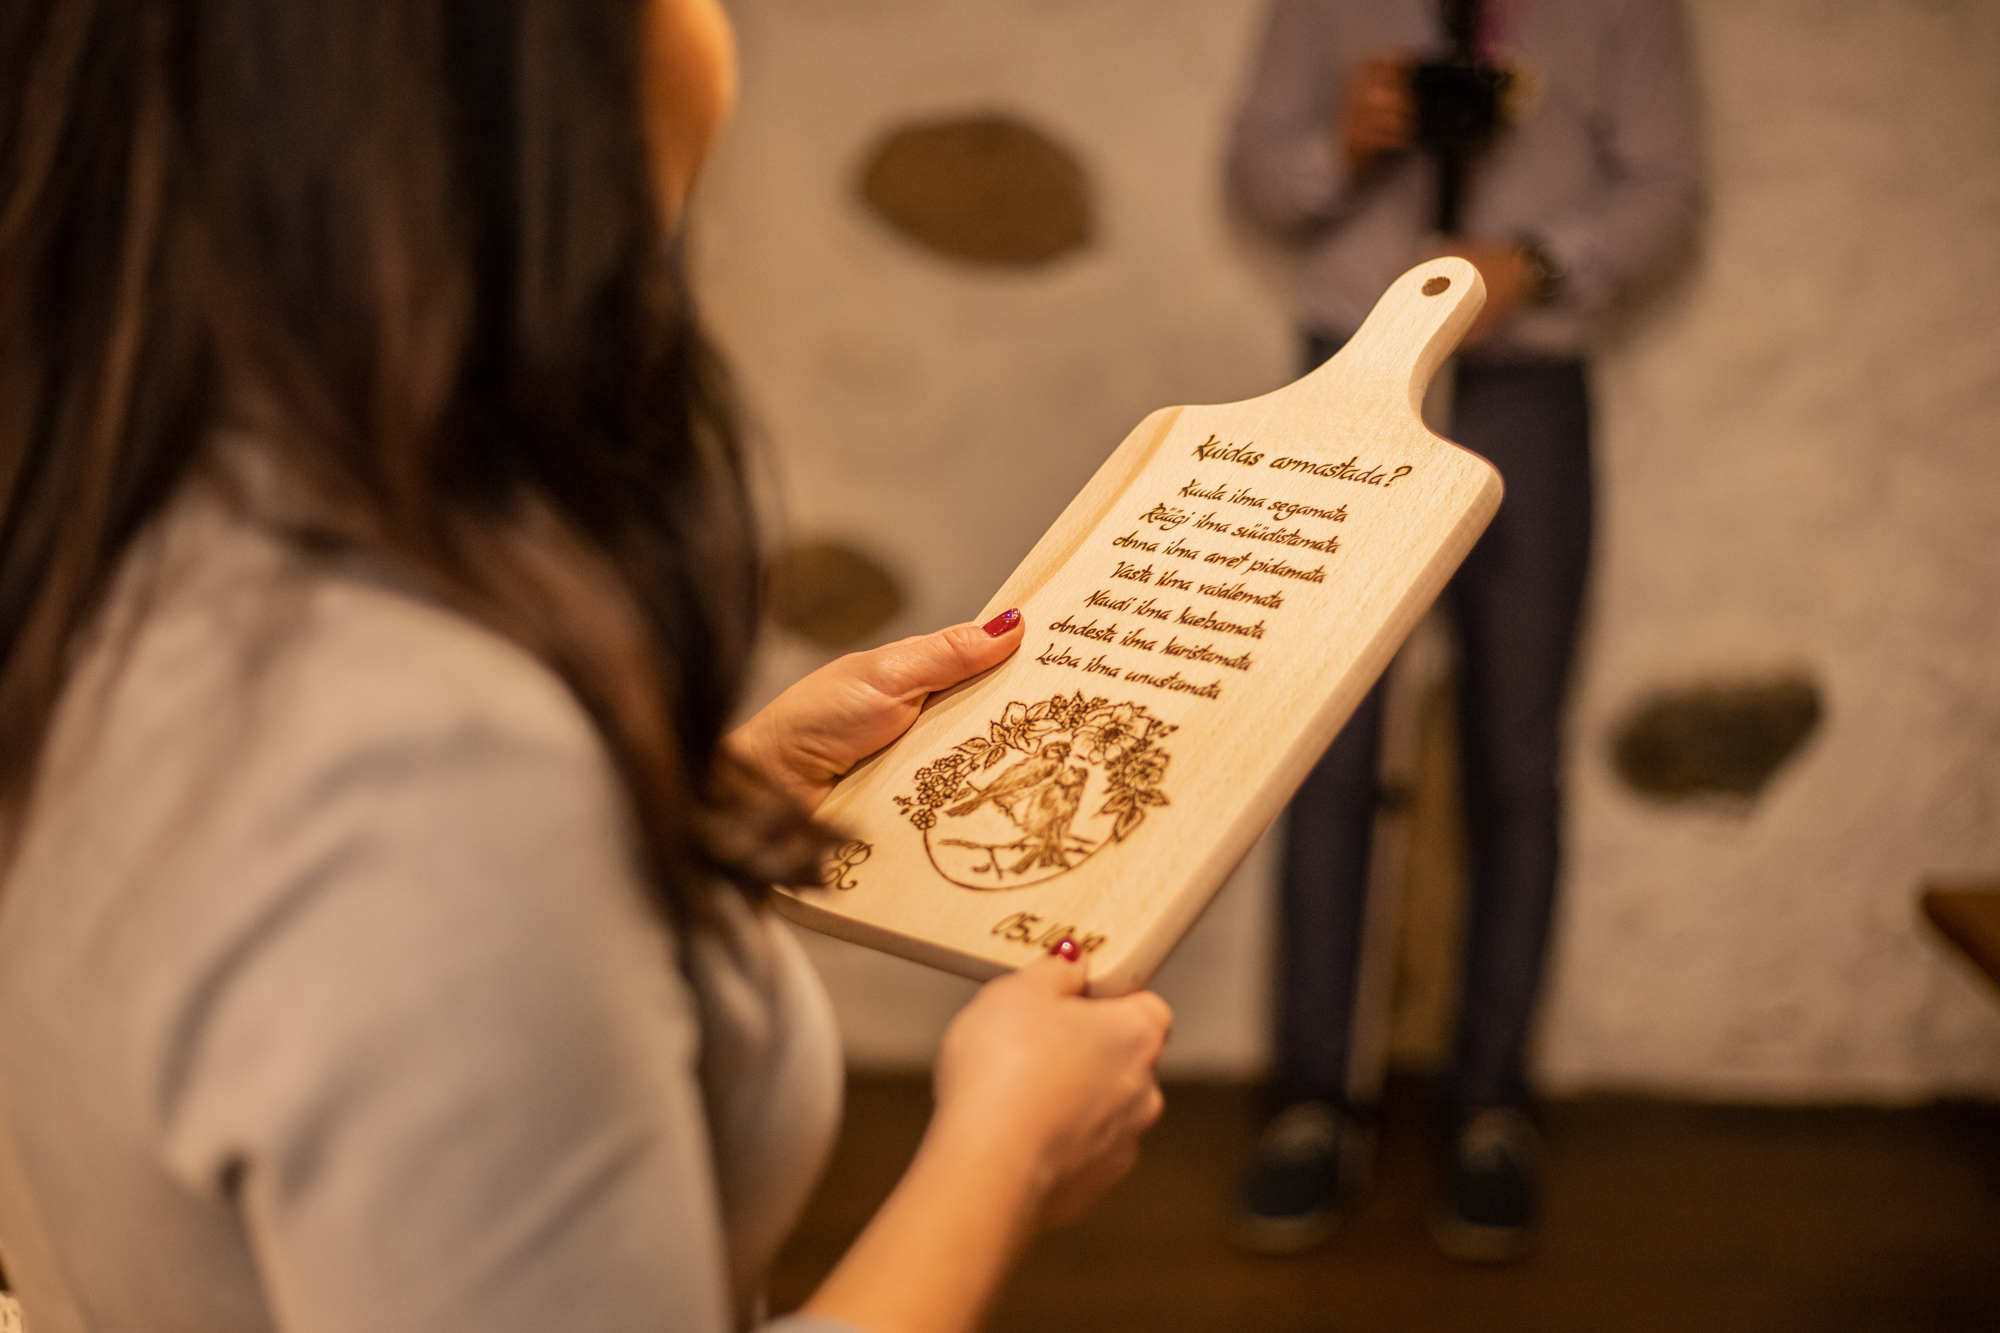 Kuidas armastada?
Kuula ilma segamata
Räägi ilma süüdistamata
Anna ilma arvet pidamata
Vasta ilma vaidlemata
Naudi ilma kaebamata
Andesta ilma karistamata
Luba ilma unustamata
R